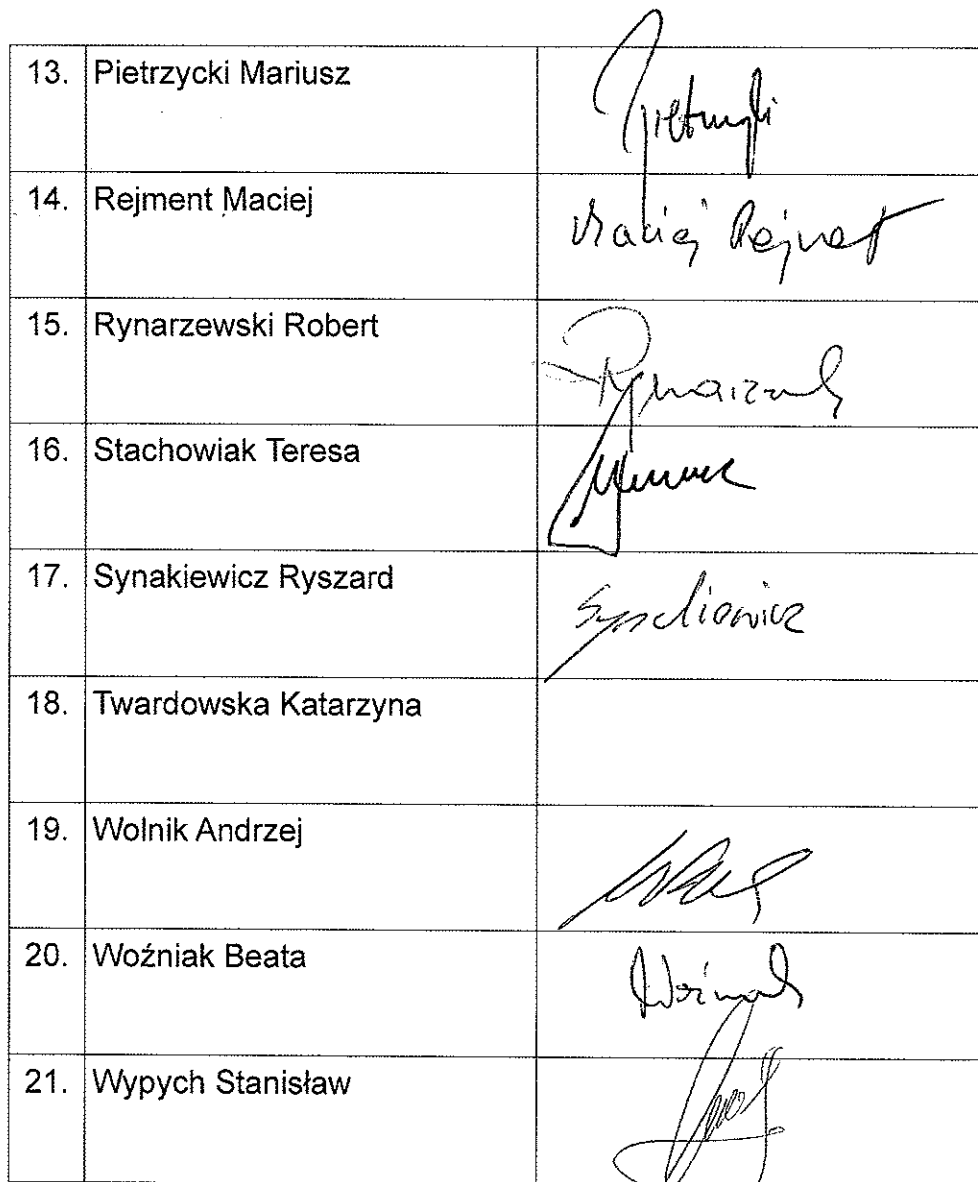 13. Pietrzycki Mariusz
14. Rejment Maciej Maciej Rejment
15. Rynarzewski Robert
16. Stachowiak Teresa
17. Synakiewicz Ryszard Synakiewicz
18. Twardowska Katarzyna
19. Wolnik Andrzej
20. Woźniak Beata Woźniak
21. Wypych Stanisław